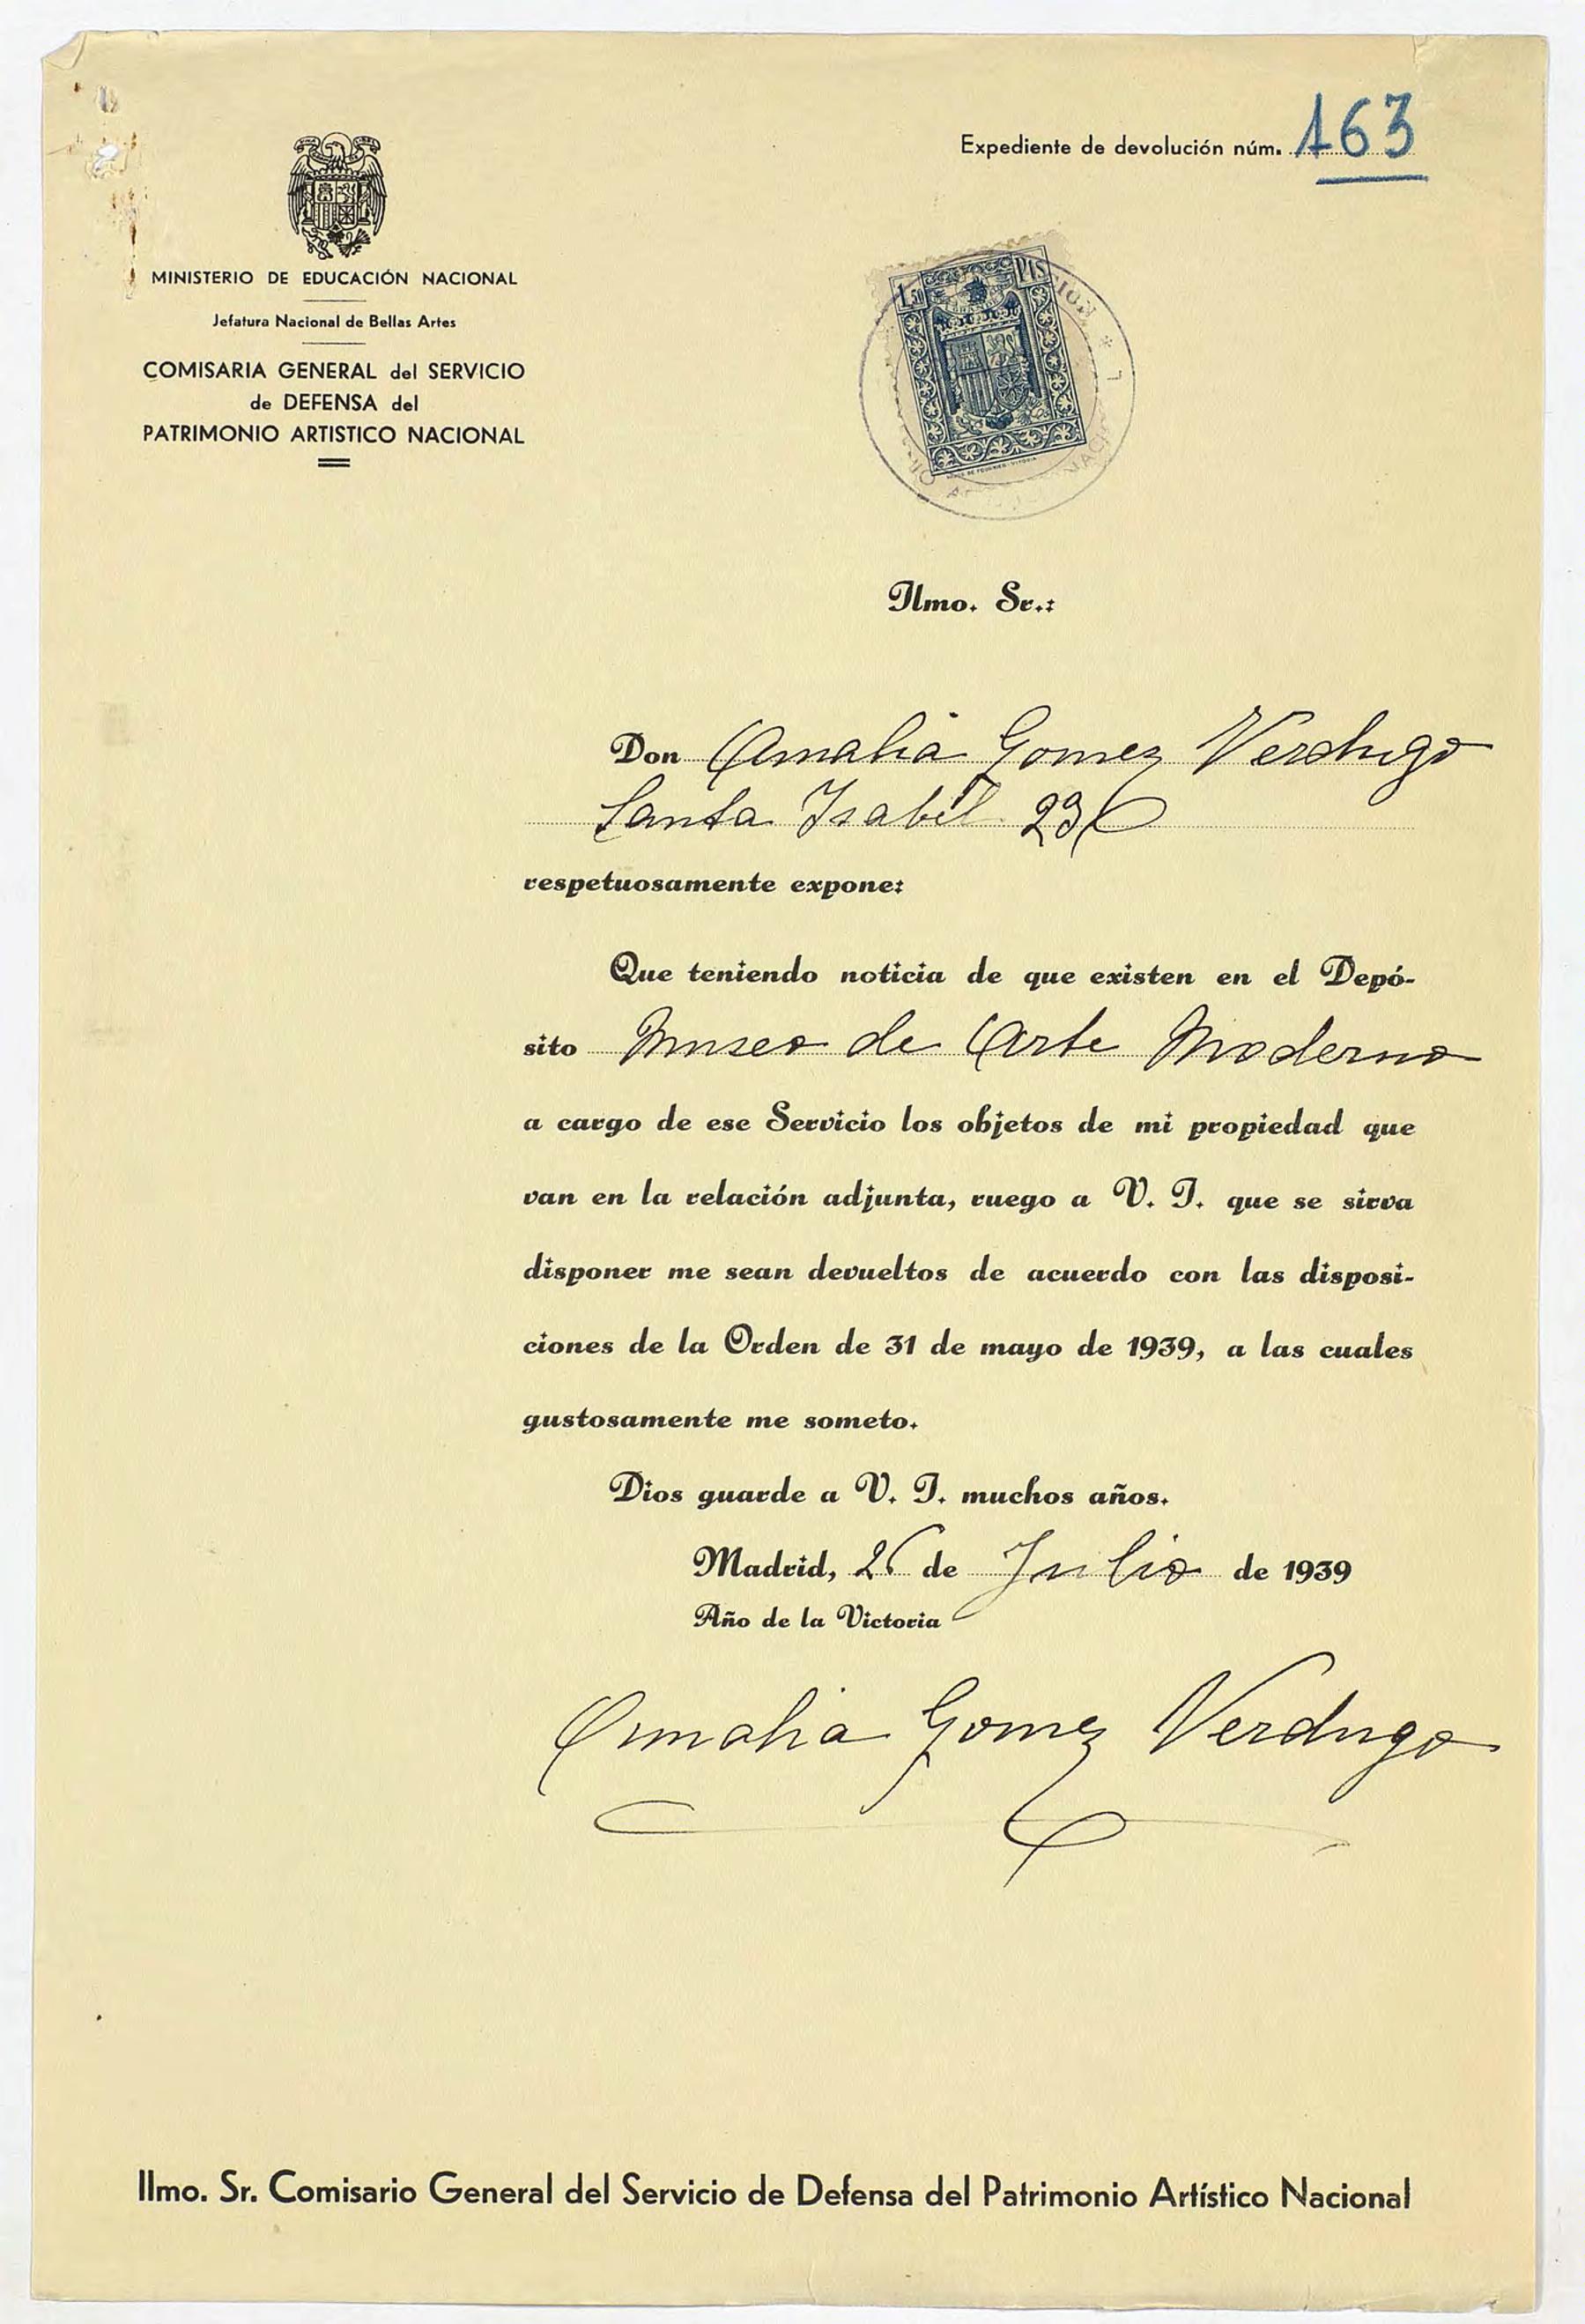 Expediente de devolución núm. 163
MINISTERIO DE EDUCACIÓN NACIONAL
Jefatura Nacional de Bellas Artes
COMISARIA GENERAL del SERVICIO
de DEFENSA del
PATRIMONIO ARTISTICO NACIONAL
1,50 PTS
Ilmo. Sr.:
Don Amalia Gomez Verdugo
Santa Isabel 23
respetuosamente expone:
Que teniendo noticia de que existen en el Depó-
sito Museo de Arte Moderno
a cargo de ese Servicio los objetos de mi propiedad que
van en la relación adjunta, ruego a V. I. que se sirva
disponer me sean devueltos de acuerdo con las disposi-
ciones de la Orden de 31 de mayo de 1939, a las cuales
gustosamente me someto.
Dios guarde a V. I. muchos años.
Madrid, 26 de Julio de 1939
Año de la Victoria
Amalia Gomez Verdugo
Ilmo. Sr. Comisario General del Servicio de Defensa del Patrimonio Artístico Nacional